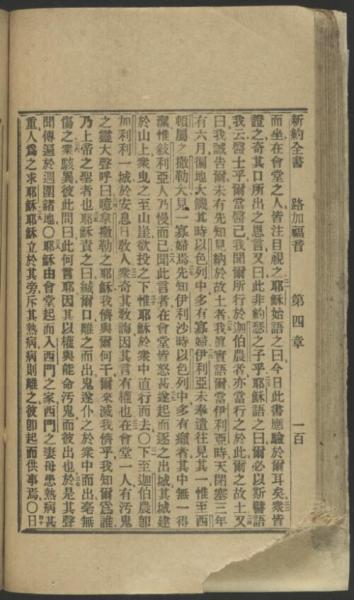 新約全書　路加福音　第四章　一百
而坐在會堂之人皆注目視之耶穌始語之曰今日此書應驗於爾耳矣衆皆
證之奇其口所出之恩言又曰此非約瑟之子乎耶穌語之曰爾必以斯醫語
我云醫士乎爾當醫己我聞爾所行於迦伯農者亦當行之於此爾之故土又
曰我誠告爾未有先知見納於故土者我眞實語爾當伊利亞時天閉塞三年
有六月徧地大饑其時以色列中多有寡婦伊利亞未奉遣往見其一惟至西
頓屬之撒勒大見一寡婦焉先知伊利沙時以色列中多有癩者其中無一得
潔惟敘利亞人乃慢而已聞此言者在會堂皆怒甚遂起而逐之出城其城建
於山上衆曳之至山崖欲投之下惟耶穌於衆中直行而去〇下至迦伯農卽
加利利一城於安息日敎人衆奇其敎誨因其言有權也在會堂一人有汚鬼
之靈大聲呼曰噫拿撒勒之耶穌我儕與爾何干爾來滅我儕乎我知爾爲誰
乃上帝之聖者也耶穌責之曰緘爾口離之而出鬼遂仆之於衆中而出毫無
傷之衆駭異彼此問曰此何言耶因其以權與能命汚鬼而彼出也於是其聲
聞傳遍於週圍諸地〇耶穌由會堂起而入西門之家西門之妻母患熱病甚
重人爲之求耶穌耶穌立於其旁斥其熱病病則離之彼卽起而供事焉〇日